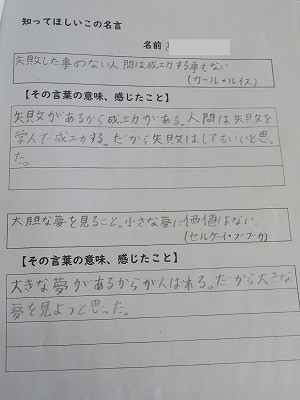 知ってほしいこの名言
名前
失敗した事のない人間は成功する事もない
(カール・ルイス)
【その言葉の意味、感じたこと】
失敗があるから成功がある。人間は失敗を
学んで成功する。だから失敗はしてもいいと思っ
た。
大胆な夢を見ること。小さな夢に価値はない。
(セルゲイ・ブブカ)
【その言葉の意味、感じたこと】
大きな夢があるからが人ばれる。だから大きな
夢を見ようと思った。